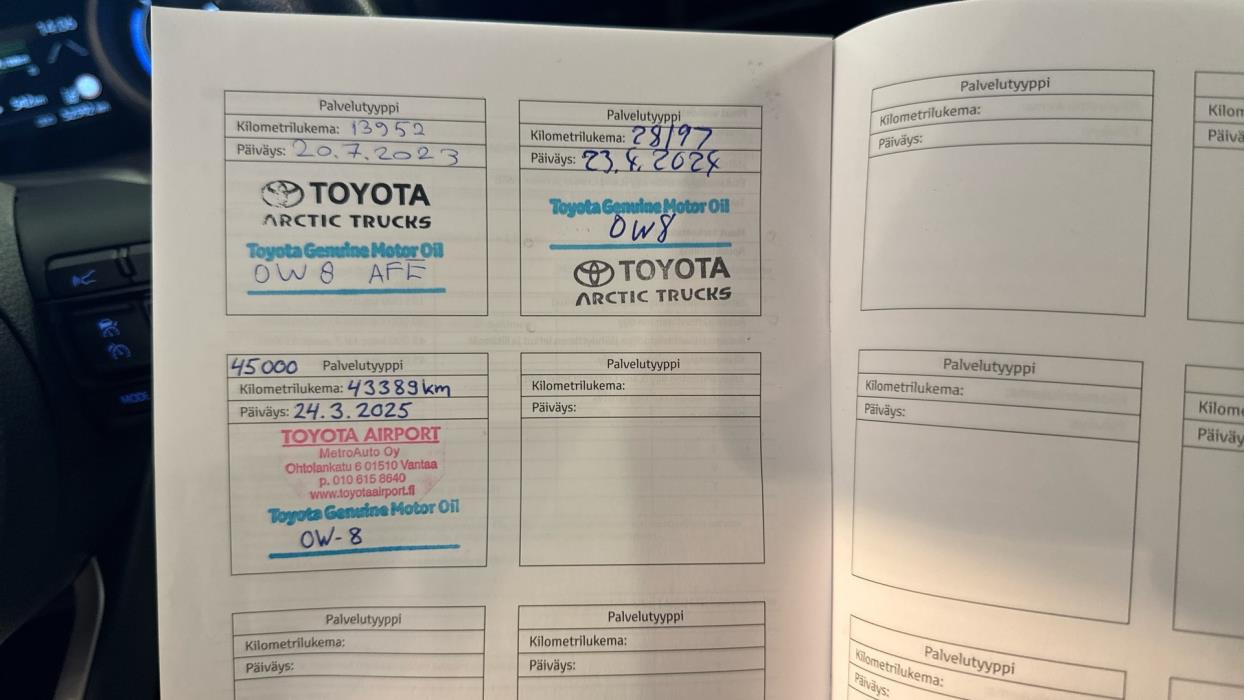 Palvelutyyppi
Kilometrilukema: 13952
Päiväys: 20.7.2023
TOYOTA
ARCTIC TRUCKS
Toyota Genuine Motor Oil
0W8 AFE
Palvelutyyppi
Kilometrilukema: 28197
Päiväys: 23.4.2024
Toyota Genuine Motor Oil
0W8
TOYOTA
ARCTIC TRUCKS
45000 Palvelutyyppi
Kilometrilukema: 43389km
Päiväys: 24.3.2025
TOYOTA AIRPORT
MetroAuto Oy
Ohtolankatu 6 01510 Vantaa
p. 010 615 8640
www.toyotaairport.fi
Toyota Genuine Motor Oil
0W-8
Palvelutyyppi
Kilometrilukema:
Päiväys:
Palvelutyyppi
Kilometrilukema:
Päiväys:
Palvelutyyppi
Kilometrilukema:
Päiväys:
Palvelutyyppi
Kilometrilukema:
Päiväys:
Kilom
Päivä
Palvelutyyppi
Kilometrilukema:
Päiväys:
Kilome
Päiväy
Palvelutyyppi
Kilometrilukema:
Päiväys:
MODE